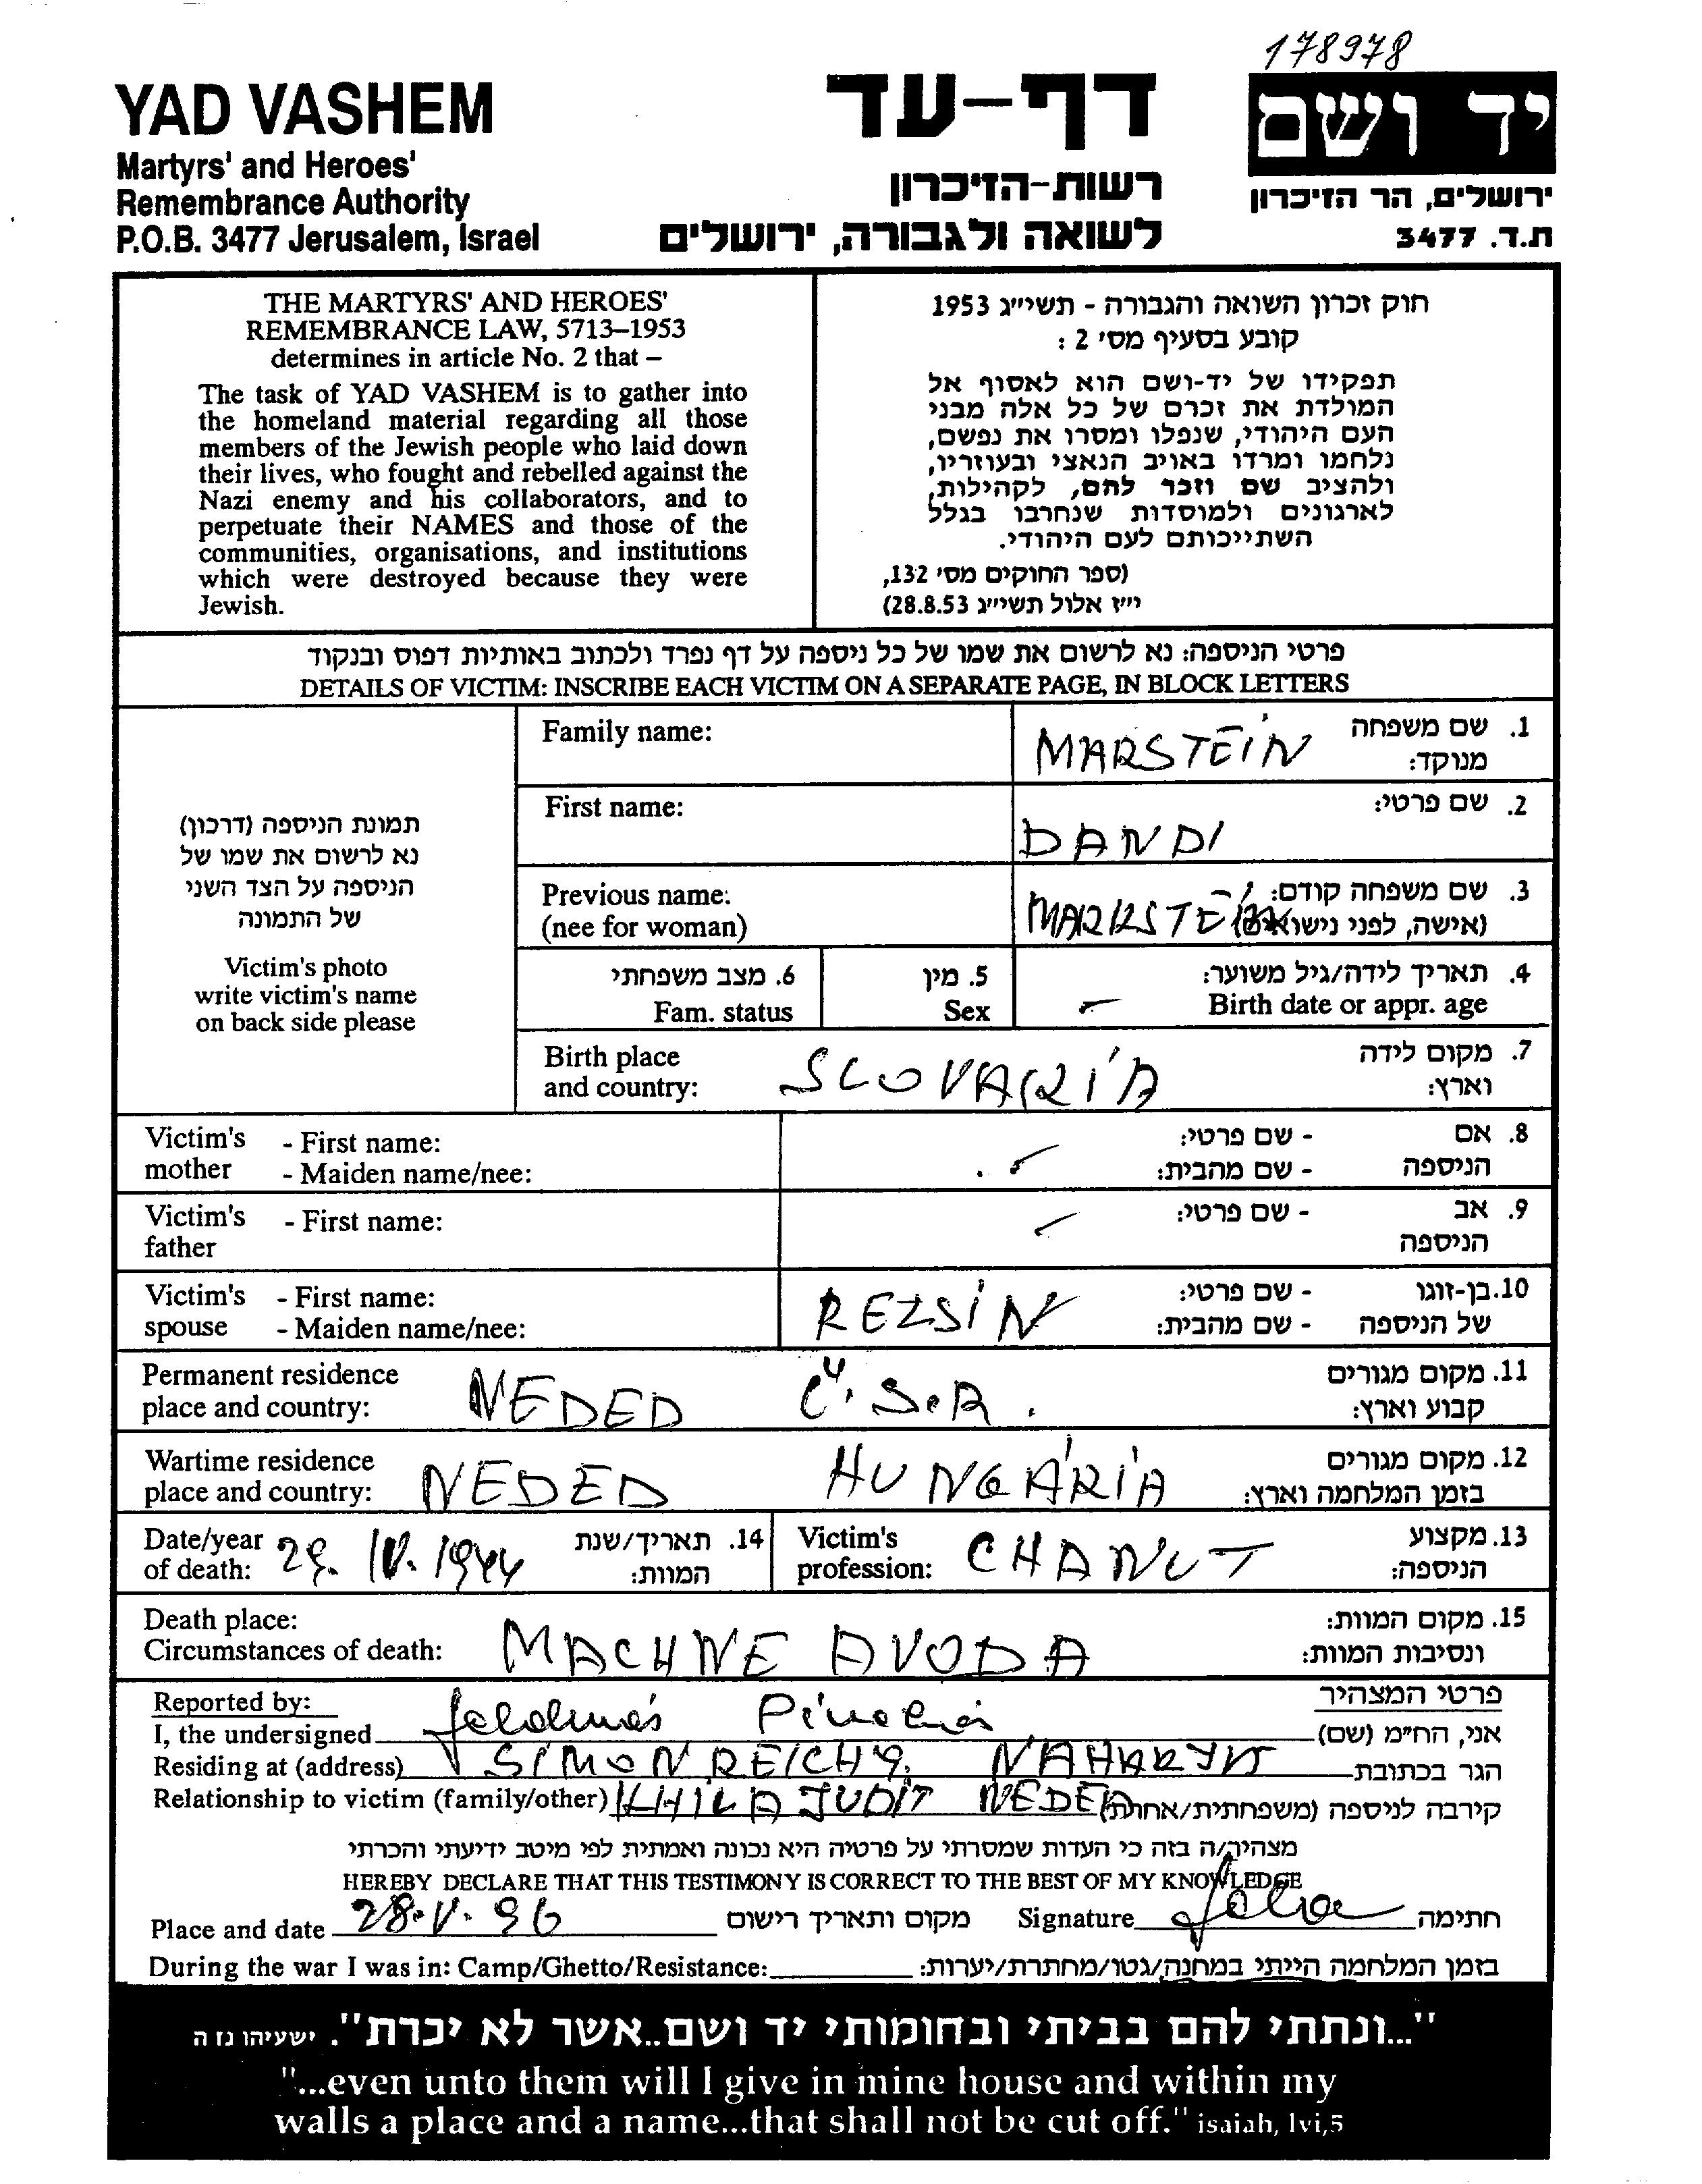 178978
YAD VASHEM
Martyrs' and Heroes'
Remembrance Authority
P.O.B. 3477 Jerusalem, Israel
דף-עד
רשות-הזיכרון
לשואה ולגבורה, ירושלים
יד ושם
ירושלים, הר הזיכרון
ת.ד. 3477
THE MARTYRS' AND HEROES'
REMEMBRANCE LAW, 5713–1953
determines in article No. 2 that –
The task of YAD VASHEM is to gather into
the homeland material regarding all those
members of the Jewish people who laid down
their lives, who fought and rebelled against the
Nazi enemy and his collaborators, and to
perpetuate their NAMES and those of the
communities, organisations, and institutions
which were destroyed because they were
Jewish.
חוק זכרון השואה והגבורה - תשי״ג 1953
קובע בסעיף מס' 2 :
תפקידו של יד-ושם הוא לאסוף אל
המולדת את זכרם של כל אלה מבני
העם היהודי, שנפלו ומסרו את נפשם,
נלחמו ומרדו באויב הנאצי ובעוזריו,
ולהציב שם וזכר להם, לקהילות,
לארגונים ולמוסדות שנחרבו בגלל
השתייכותם לעם היהודי.
(ספר החוקים מס' 132,
י״ז אלול תשי״ג 28.8.53)
פרטי הניספה: נא לרשום את שמו של כל ניספה על דף נפרד ולכתוב באותיות דפוס ובנקוד
DETAILS OF VICTIM: INSCRIBE EACH VICTIM ON A SEPARATE PAGE, IN BLOCK LETTERS
תמונת הניספה (דרכון)
נא לרשום את שמו של
הניספה על הצד השני
של התמונה
Victim's photo
write victim's name
on back side please
Family name: MARSTEIN 1. שם משפחה
מנוקד:
First name: DANDI 2. שם פרטי:
Previous name: MARKSTEIN 3. שם משפחה קודם:
(nee for woman) (אישה, לפני נישואים)
6. מצב משפחתי 5. מין 4. תאריך לידה/גיל משוער:
Fam. status Sex Birth date or appr. age
Birth place SLOVAKIA 7. מקום לידה
and country: וארץ:
Victim's - First name: - שם פרטי: 8. אם
mother - Maiden name/nee: - שם מהבית: הניספה
Victim's - First name: - שם פרטי: 9. אב
father הניספה
Victim's - First name: REZSIN - שם פרטי: 10. בן-זוגו
spouse - Maiden name/nee: - שם מהבית: של הניספה
Permanent residence NEDED Č.S.R. 11. מקום מגורים
place and country: קבוע וארץ:
Wartime residence NEDED HUNGÁRIA 12. מקום מגורים
place and country: בזמן המלחמה וארץ:
Date/year 29. IV. 1944 14. תאריך/שנת
of death: המוות:
Victim's CHANUT 13. מקצוע
profession: הניספה:
Death place: MACHNE AVODA 15. מקום המוות:
Circumstances of death: ונסיבות המוות:
Reported by: פרטי המצהיר
I, the undersigned אני, הח״מ (שם)
Residing at (address) SIMON REICH 9. הגר בכתובת
Relationship to victim (family/other) KHILA JUDIT NEDED קירבה לניספה (משפחתית/אחרת)
מצהיר/ה בזה כי העדות שמסרתי על פרטיה היא נכונה ואמתית לפי מיטב ידיעתי והכרתי
HEREBY DECLARE THAT THIS TESTIMONY IS CORRECT TO THE BEST OF MY KNOWLEDGE
Place and date 28.V.96 מקום ותאריך רישום Signature חתימה
During the war I was in: Camp/Ghetto/Resistance: בזמן המלחמה הייתי במחנה/גטו/מחתרת/יערות:
"...ונתתי להם בביתי ובחומותי יד ושם..אשר לא יכרת". ישעיהו נז ה
"...even unto them will I give in mine house and within my
walls a place and a name...that shall not be cut off." isaiah, lvi,5